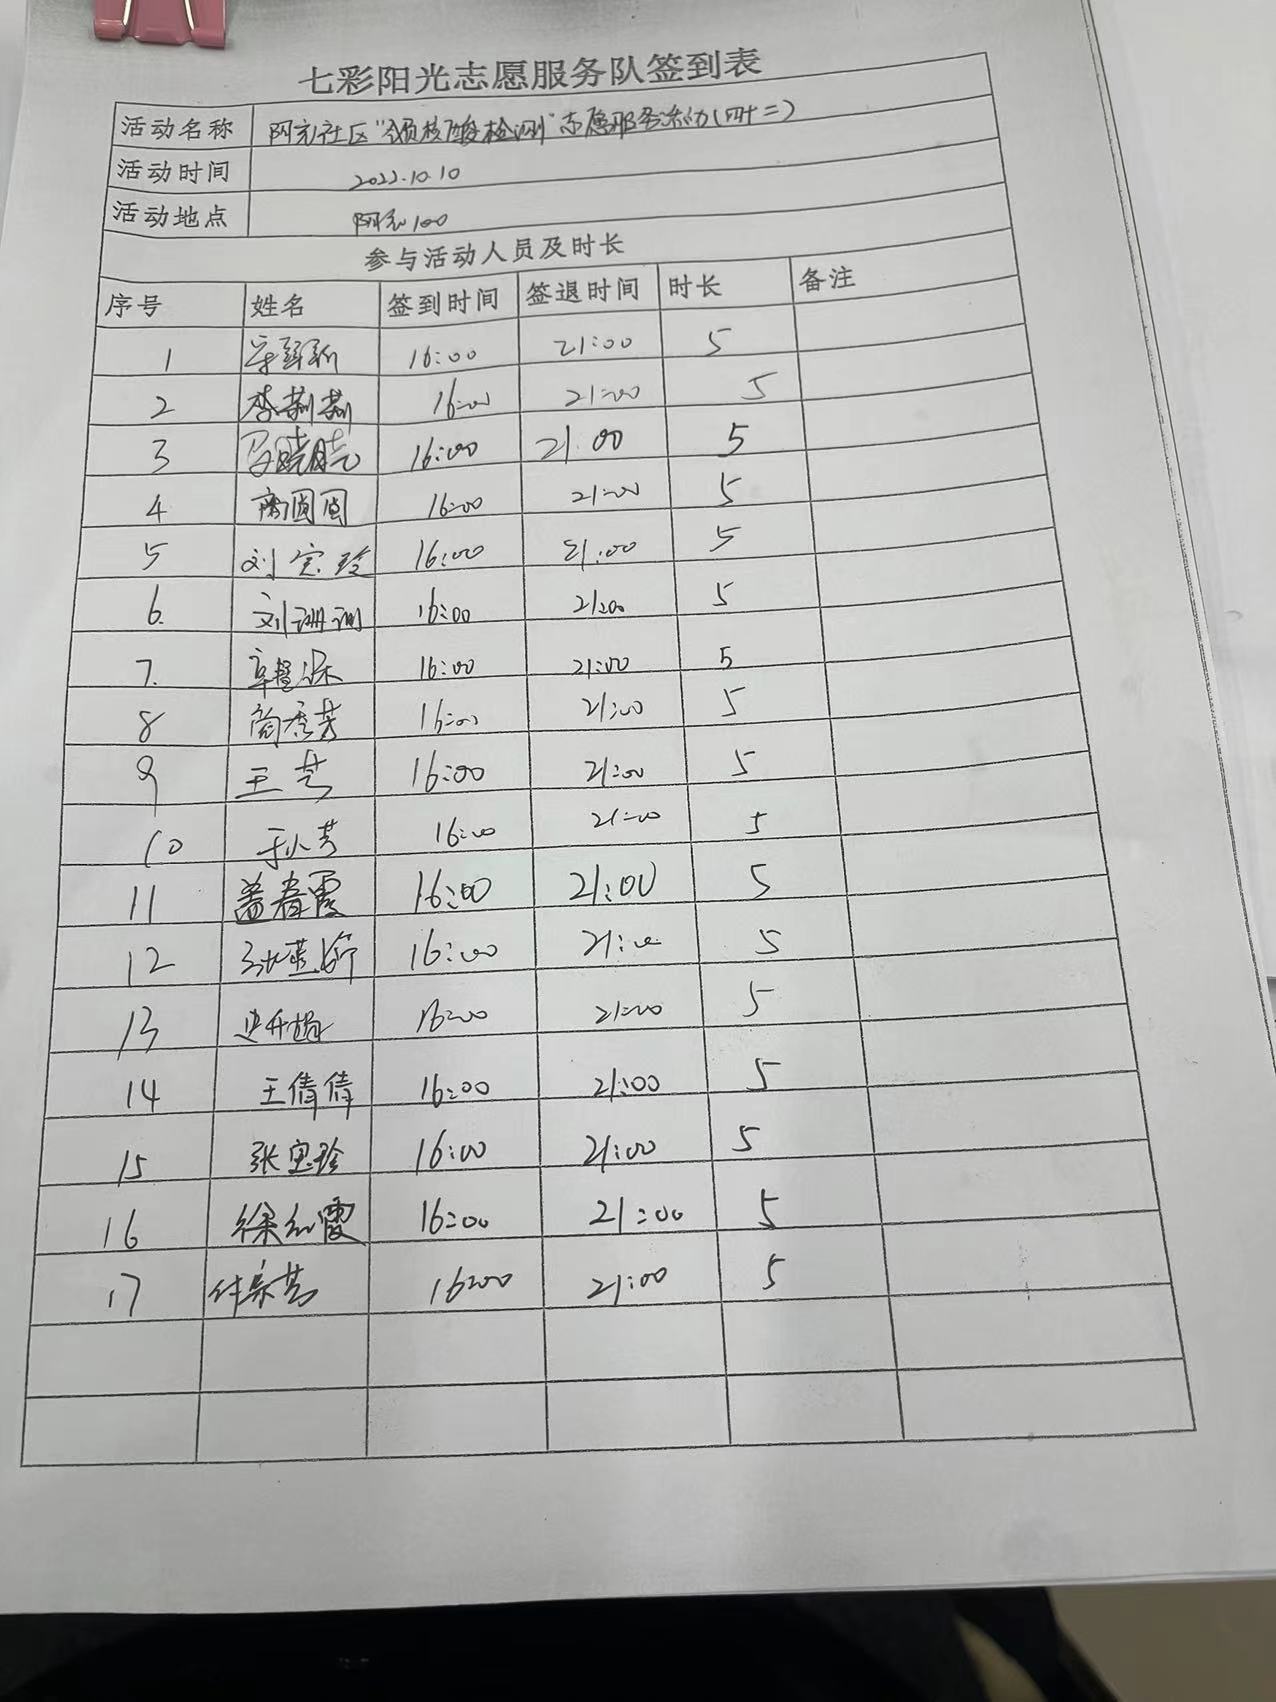 七彩阳光志愿服务队签到表
活动名称 社区"核酸检测"志愿服务活动(四十二)
活动时间 2022.10.10
活动地点 100
参与活动人员及时长
序号 姓名 签到时间 签退时间 时长 备注
1 16:00 21:00 5
2 李莉莉 16:00 21:00 5
3 马晓晓 16:00 21:00 5
4 圆圆 16:00 21:00 5
5 刘宝玲 16:00 21:00 5
6. 刘 16:00 21:00 5
7. 16:00 21:00 5
8 芳 16:00 21:00 5
9 王芳 16:00 21:00 5
10 于小芳 16:00 21:00 5
11 盖春霞 16:00 21:00 5
12 16:00 21:00 5
13 16:00 21:00 5
14 王倩倩 16:00 21:00 5
15 张宝珍 16:00 21:00 5
16 徐红霞 16:00 21:00 5
17 16:00 21:00 5